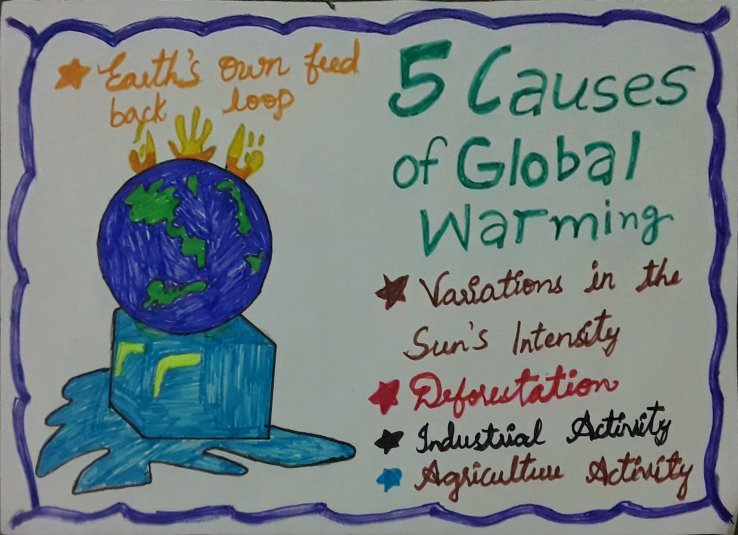 Earth's own feed
back loop
5 Causes
of Global
Warming
Variations in the
Sun's Intensity
Deforestation
Industrial Activity
Agriculture Activity